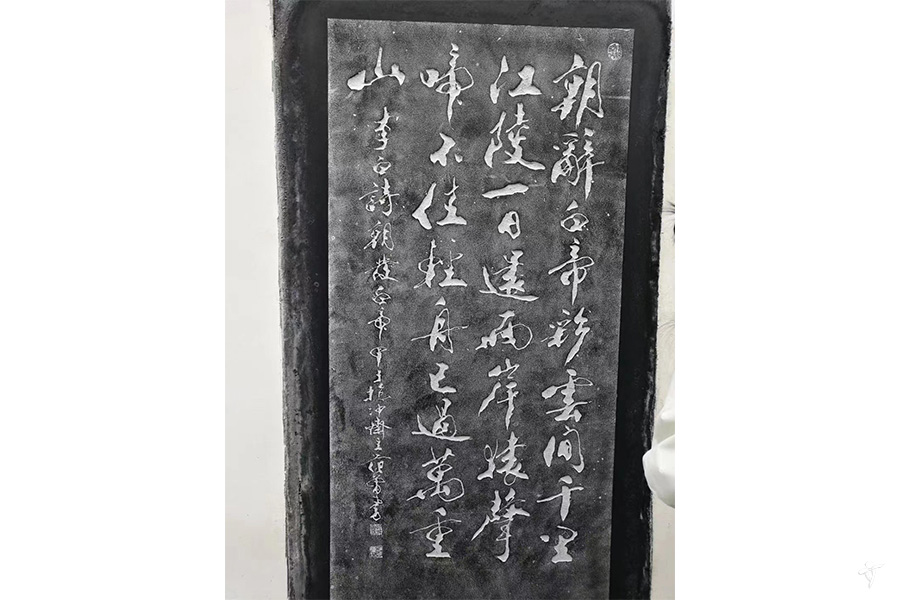 朝辭白帝彩雲間千里
江陵一日還兩岸猿聲
啼不住輕舟已過萬重
山
李白詩朝發白帝